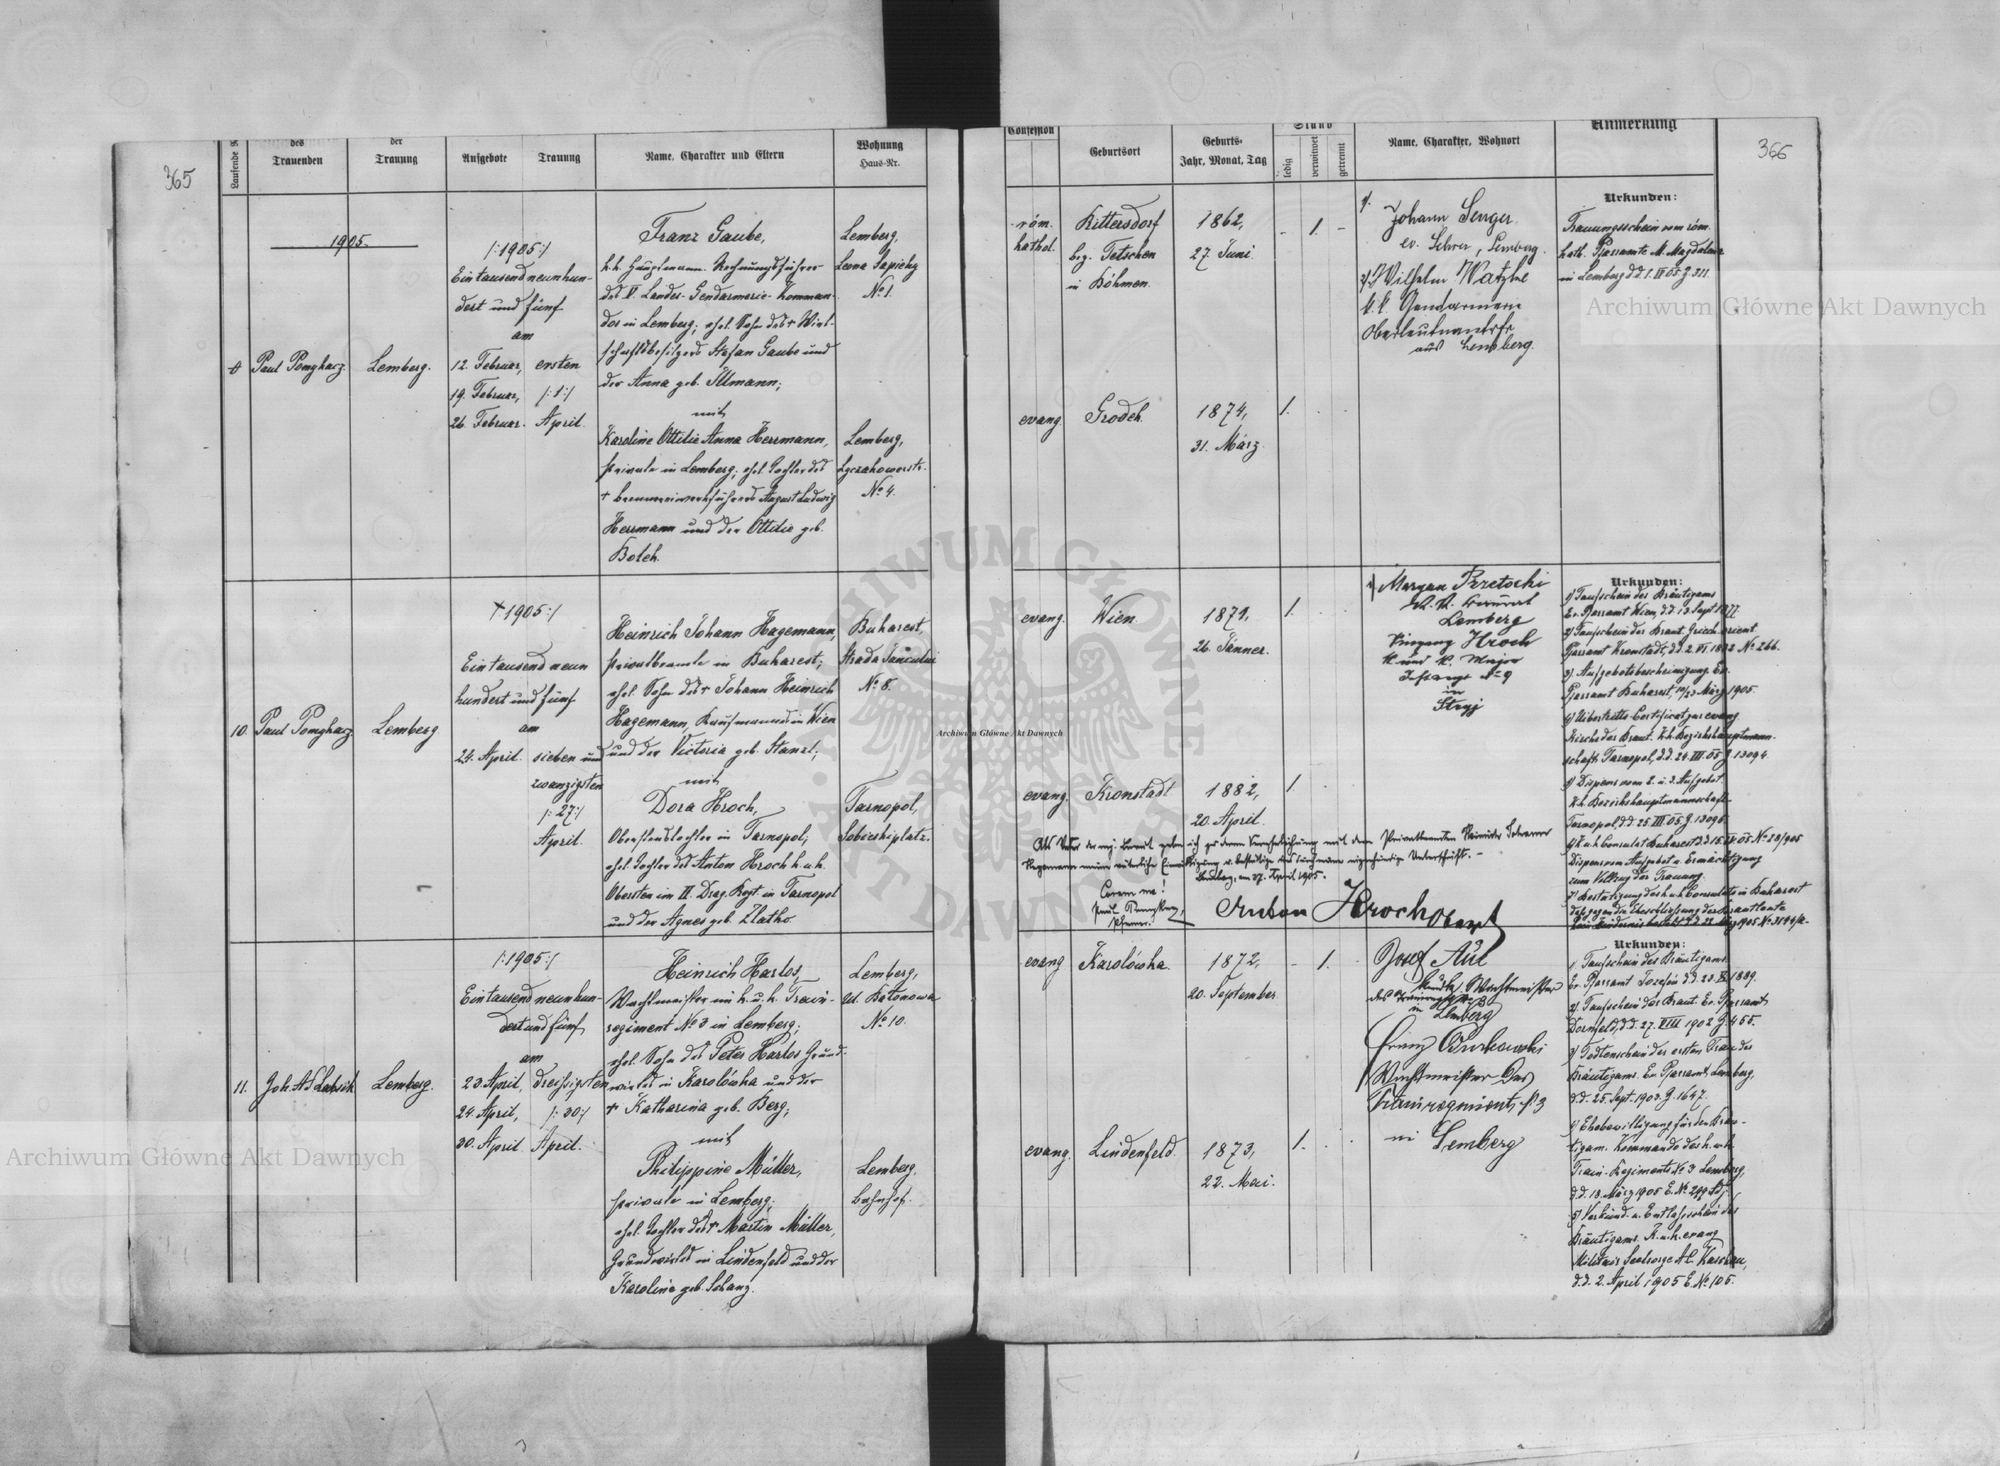 365
366
Laufende
des Trauenden
der Trauung
Aufgebote
Trauung
Name, Charakter und Eltern
Wohnung Haus-Nr.
Confession
Geburtsort
Geburts-
Jahr, Monat, Tag
Stand
ledig
verwitwet
getrennt
Name, Charakter, Wohnort
Anmerkung
1905
Paul Pomykacz
Lemberg.
/:1905:/
Eintausendneunhun-
dert und fünf
am
12. Februar,
19. Februar,
26. Februar.
ersten
/:1:/
April.
Franz Gaube,
k.k. Hauptmann-Rechnungsführer
des V. Landes-Gendarmerie-Komman-
dos in Lemberg; ehel. Sohn des + Wirt-
schaftsbesitzers Stefan Gaube und
der Anna geb. Illmann;
mit
Karoline Ottilie Anna Herrmann,
Private in Lemberg; ehel. Tochter des
+ Brennereiwerkführers August Ludwig
Herrmann und der Ottilie geb.
Bolek.
Lemberg,
Leona Sapiehy
No 1.
Lemberg,
Lyczakowerstr.
No 4.
röm.
kathol.
Rittersdorf
bez. Tetschen
in Böhmen.
1862,
27. Juni.
- 1. -
evang.
Grodek.
1874,
31. März.
1.
1.
Johann Senger.
ev. Lehrer, Lemberg.
2) Wilhelm Watzke
k.k. Gendarmerie
Oberleutnant
aus Lemberg.
Urkunden:
Trauungsschein vom röm.
kath. Pfarramte M. Magdalena
in Lemberg d.d. 1. IV 05 Z. 311.
10.
Paul Pomykacz
Lemberg
+ 1905:/
Eintausendneun
hundert und fünf
am
24. April.
sieben und
zwanzigsten
/:27:/
April.
Heinrich Johann Hagemann,
Privatbeamte in Bukarest;
ehel. Sohn des + Johann Heinrich
Hagemann, Kaufmannes in Wien
und der Victoria geb. Stanzl;
mit
Dora Hroch,
Oberstenstochter in Tarnopol;
ehel. Tochter des Anton Hroch k.u.k.
Obersten im II. Drag. Regt. in Tarnopol
und der Agnes geb. Zlatko.
Bukarest,
Strada Jancului
No 8.
Tarnopol,
Sobieskiplatz.
evang.
Wien
1871,
26. Jänner.
1.
evang.
Kronstadt
1882,
20. April.
1
Lemberg
Hroch
K. und K. Major
in
Stryj
Urkunden:
1) Taufschein des Bräutigams
Ev. Pfarramt Wien, d.d. 13. Sept 1877.
2) Taufschein der Braut. Griech. orient.
Pfarramt Kronstadt, d.d. 2. VI 1882 No 266.
3) Aufgebotsbescheinigung Ev.
Pfarramt Bukarest, März 1905.
4) Uibertritts-Certificat zur evang.
Kirche der Braut. k.k. Bezirkshauptmann-
schaft Tarnopol, d.d. 24. III 05 Z. 13094.
5) Dispens vom 2. u. 3. Aufgebot.
k.k. Bezirkshauptmannschaft
Tarnopol, d.d. 25. III 05 Z. 13096.
6) K.u.k. Consulat Bukarest d.d. 15. IV 05. No 32/905
Dispens vom Aufgebot u. Ermächtigung
zum Vollzug der Trauung.
7) Bestätigung des k.u.k. Consulats in Bukarest
dass gegen die Eheschließung der Brautleute
Als Vater der mj. Braut gebe ich zu deren Verehelichung mit dem Privatbeamten Heinrich Johann
Hagemann meine väterliche Einwilligung u. bestätige dies durch meine eigenhändige Unterschrift. -
Lemberg, am 27. April 1905.
Coram me!
Pfarrer.
Anton Hroch Oberst
11.
Joh. A. Labsik
Lemberg.
/:1905:/
Eintausendneunhun-
dert und fünf
am
23. April,
24. April,
30. April.
dreißigsten
/:30:/
April.
Heinrich Harlos,
Wachtmeister im k.u.k. Train-
regiment No 3 in Lemberg;
ehel. Sohn des Peter Harlos Grund-
wirtes in Karolówka und der
+ Katharina geb. Berg;
mit
Philippine Müller,
Private in Lemberg;
ehel. Tochter des + Martin Müller,
Grundwirtes in Lindenfeld und der
Karoline geb. Schanz.
Lemberg,
ul. Betonowa
No 10.
Lemberg,
Bahnhof.
evang
Karolówka.
1872,
20. September
- 1.
evang.
Lindenfeld.
1873,
22. Mai.
1.
Josef Aul
Wachtmeister
in Lemberg
Franz Burkowski
Wachtmeister des
Trainregiments N 3
in Lemberg
Urkunden:
1. Taufschein des Bräutigams.
Ev. Pfarramt Josefin d.d. 23. XI 1889.
2) Taufschein der Braut. Ev. Pfarramt
Dornfeld, d.d. 27. VIII 1902 Z. 455.
3) Todtenschein der ersten Frau des
Bräutigams. Ev. Pfarramt Lemberg,
d.d. 25. Sept. 1903. Z. 1647.
4) Ehebewilligung für den Bräu-
tigam. Kommando des k.u.k.
Train-Regiments No 3 Lemberg,
d.d. 18. März 1905 E. No 299 Adj.
5) Verkünd- u. Entlaßschein des
Bräutigams. K.u.k. evang.
Militär Seelsorge A.C. Kaschau,
d.d. 2. April 1905 E. No 105.
Archiwum Główne Akt Dawnych
Archiwum Główne Akt Dawnych
Archiwum Główne Akt Dawnych
ARCHIWUM GŁÓWNE AKT DAWNYCH